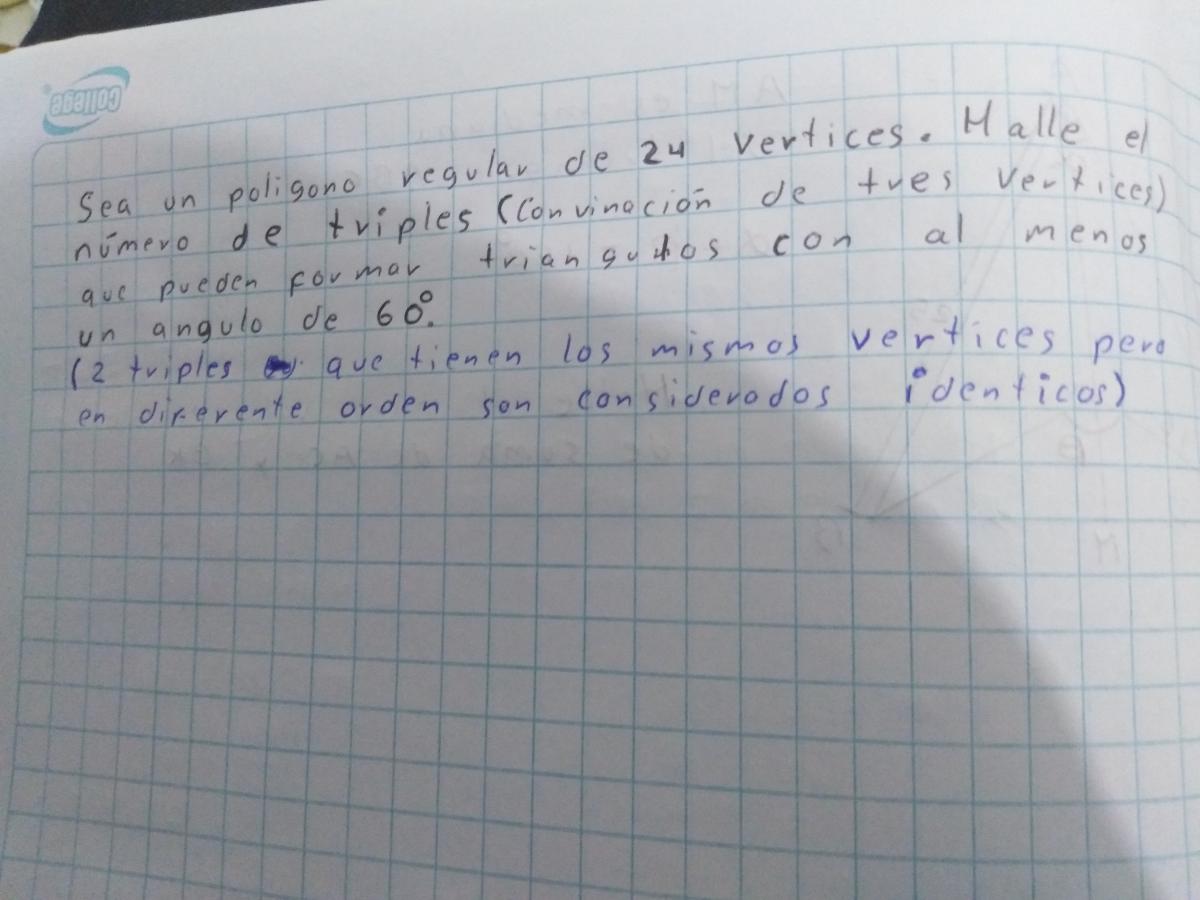 college
Sea un poligono regular de 24 vertices. Halle el
número de triples (Convinación de tres vertices)
que pueden formar triangulos con al menos
un angulo de 60°.
(2 triples que tienen los mismos vertices pero
en diferente orden son considerados identicos)